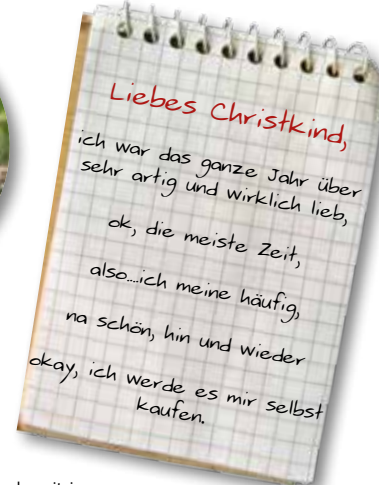 Liebes Christkind,
ich war das ganze Jahr über
sehr artig und wirklich lieb,
ok, die meiste Zeit,
also....ich meine häufig,
na schön, hin und wieder
okay, ich werde es mir selbst
kaufen.